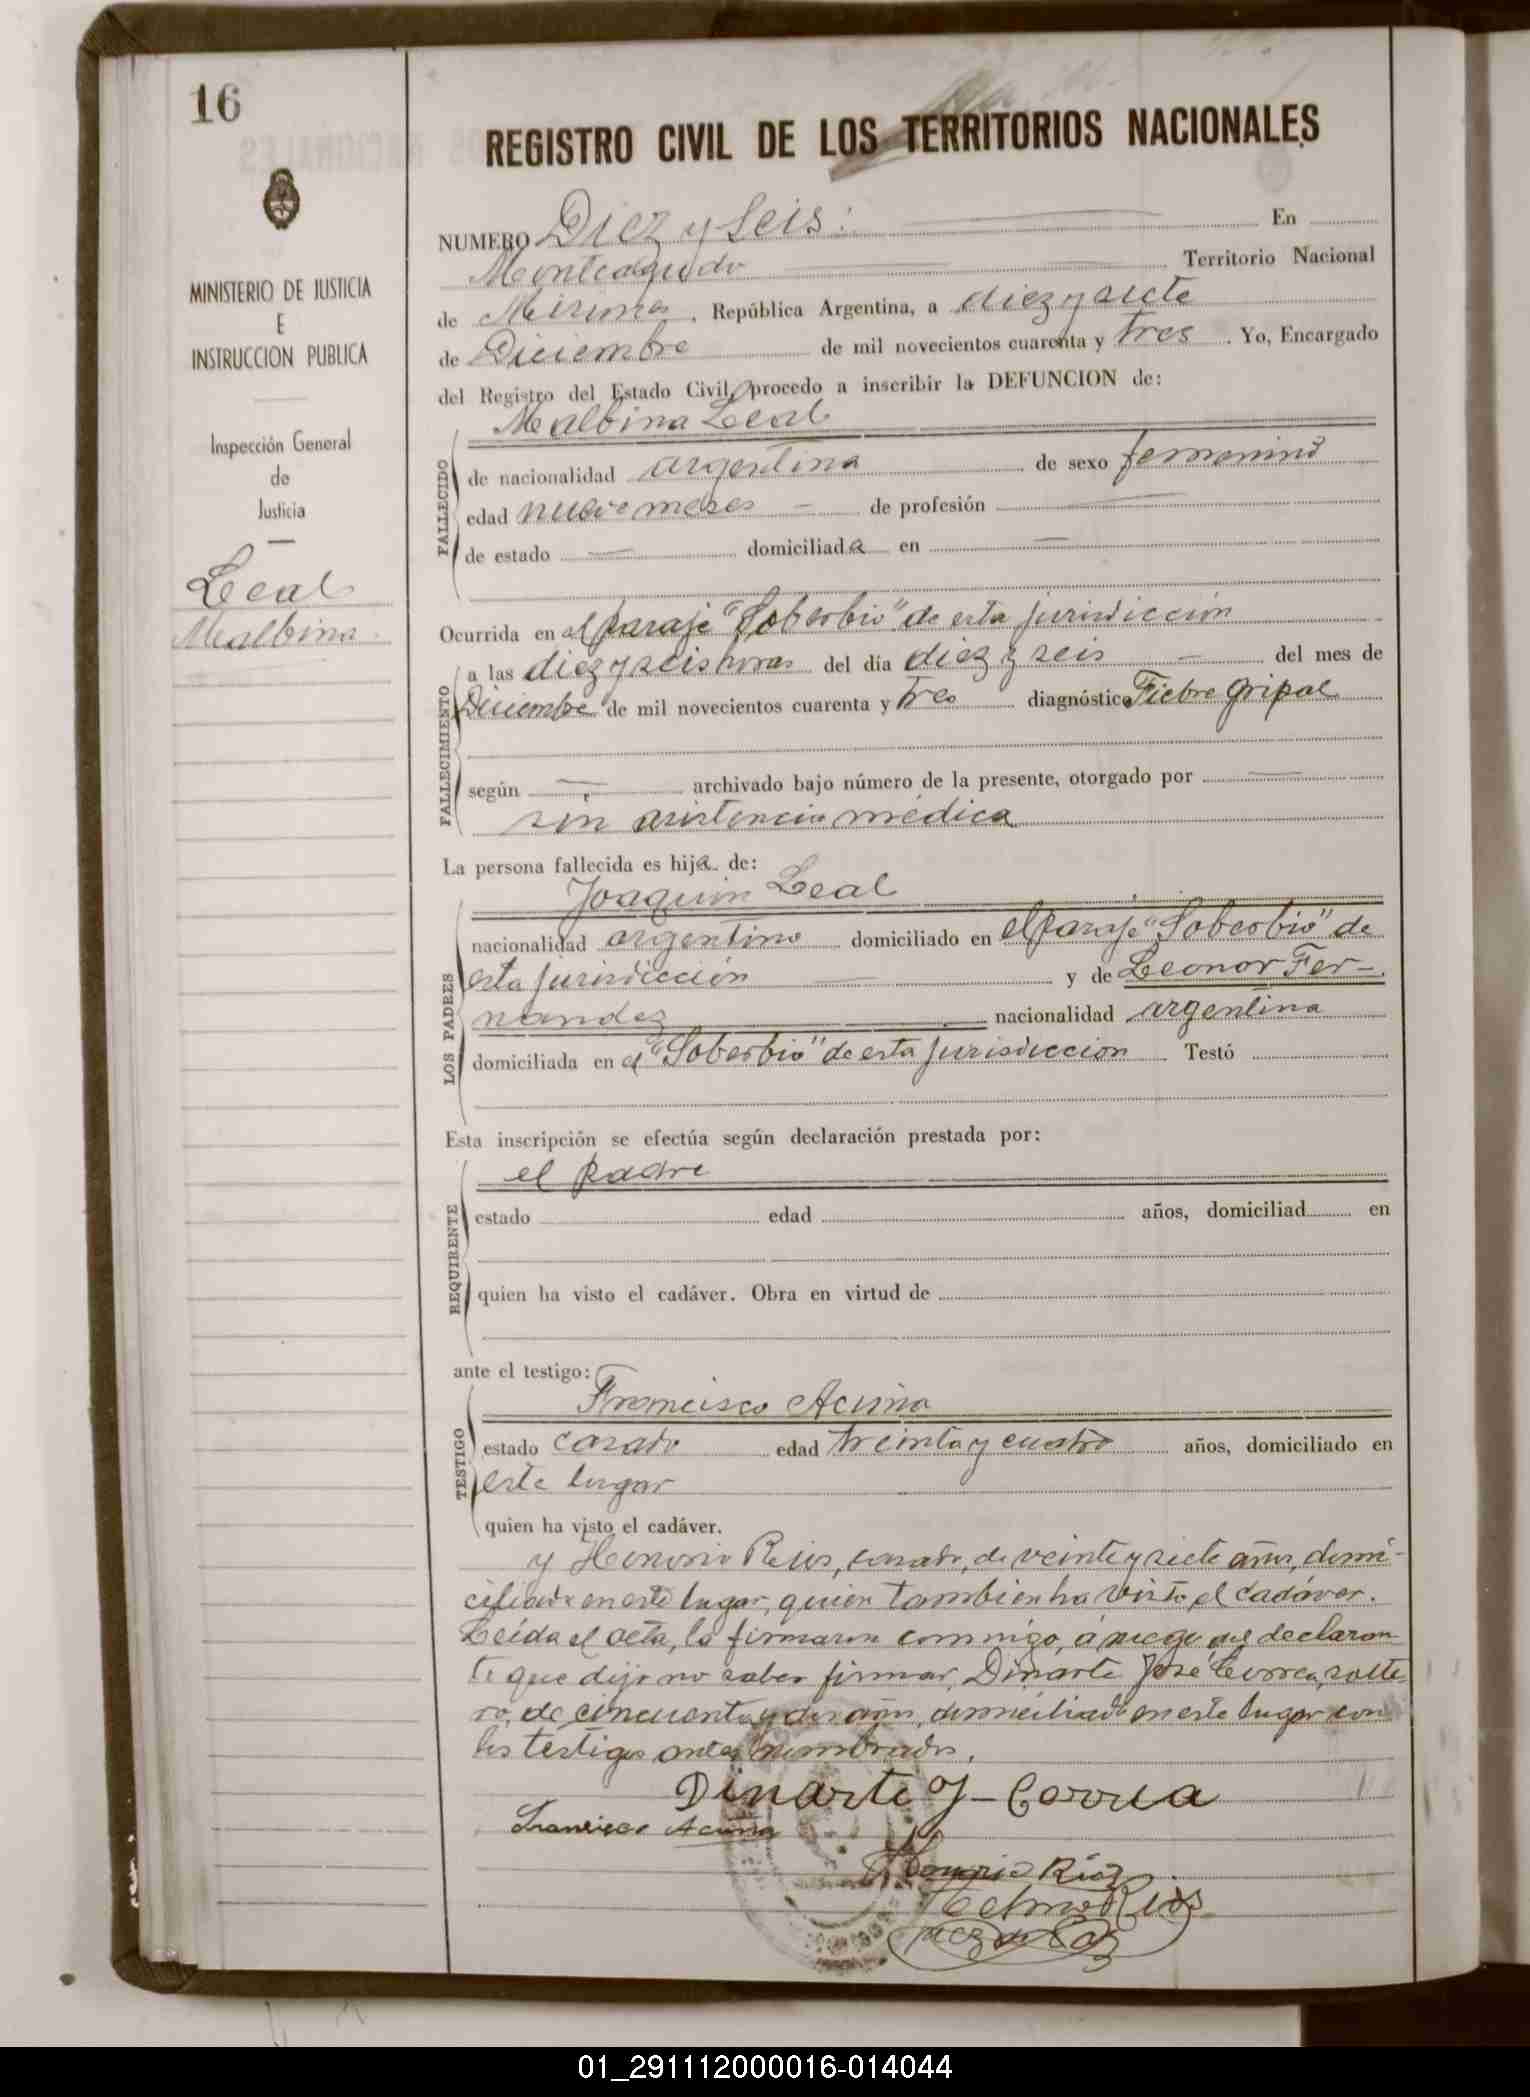 16
REGISTRO CIVIL DE LOS TERRITORIOS NACIONALES
MINISTERIO DE JUSTICIA
E
INSTRUCCION PUBLICA
Inspección General
de
Justicia
Leal
Malbina
NUMERO Diez y Seis: En
Monteagudo Territorio Nacional
de Misiones, República Argentina, a diez y siete
de Diciembre de mil novecientos cuarenta y tres. Yo, Encargado
del Registro del Estado Civil, procedo a inscribir la DEFUNCION de:
Malbina Leal
FALLECIDO
de nacionalidad argentina de sexo femenino
edad nueve meses — de profesión —
de estado — domiciliada en —
Ocurrida en el paraje "Soberbio" de esta jurisdicción
FALLECIMIENTO
a las diez y seis horas del día diez y seis — del mes de
Diciembre de mil novecientos cuarenta y tres diagnóstico Fiebre Gripal
según — archivado bajo número de la presente, otorgado por —
sin asistencia médica
La persona fallecida es hija de:
Joaquin Leal
LOS PADRES
nacionalidad argentino domiciliado en el paraje "Soberbio" de
esta jurisdicción — y de Leonor Fer-
nandez nacionalidad argentina
domiciliada en el "Soberbio" de esta jurisdiccion Testó
Esta inscripción se efectúa según declaración prestada por:
el padre
REQUIRENTE
estado edad años, domiciliad en
quien ha visto el cadáver. Obra en virtud de
ante el testigo:
Francisco Acuña
TESTIGO
estado casado edad treinta y cuatro años, domiciliado en
este lugar
quien ha visto el cadáver.
y Honorio Rios, casado, de veinte y siete años, domi-
ciliado en este lugar, quien tambien ha visto el cadáver.
Leida el acta, la firmaron conmigo, á ruego del declaran-
te que dijo no saber firmar, Dinarte José Correa, solte-
ro, de cincuenta y dos años, domiciliado en este lugar con
los testigos antes nombrados.
Dinarte J- Correa
Francisco Acuña
Honorio Rios
Rios
Juez de Paz
01_291112000016-014044